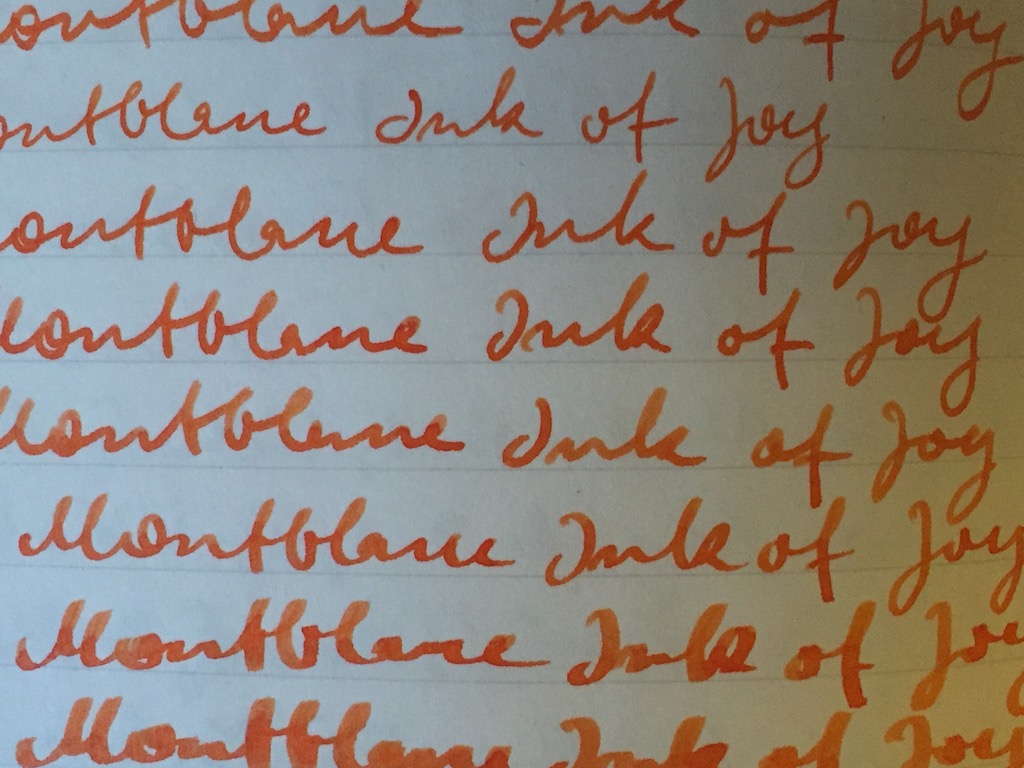 ontblanc Ink of Joy
ontblanc Ink of Joy
ontblanc Ink of Joy
Montblanc Ink of Joy
Montblanc Ink of Joy
Montblanc Ink of Joy
Montblanc Ink of Joy
Montblanc Ink of Joy